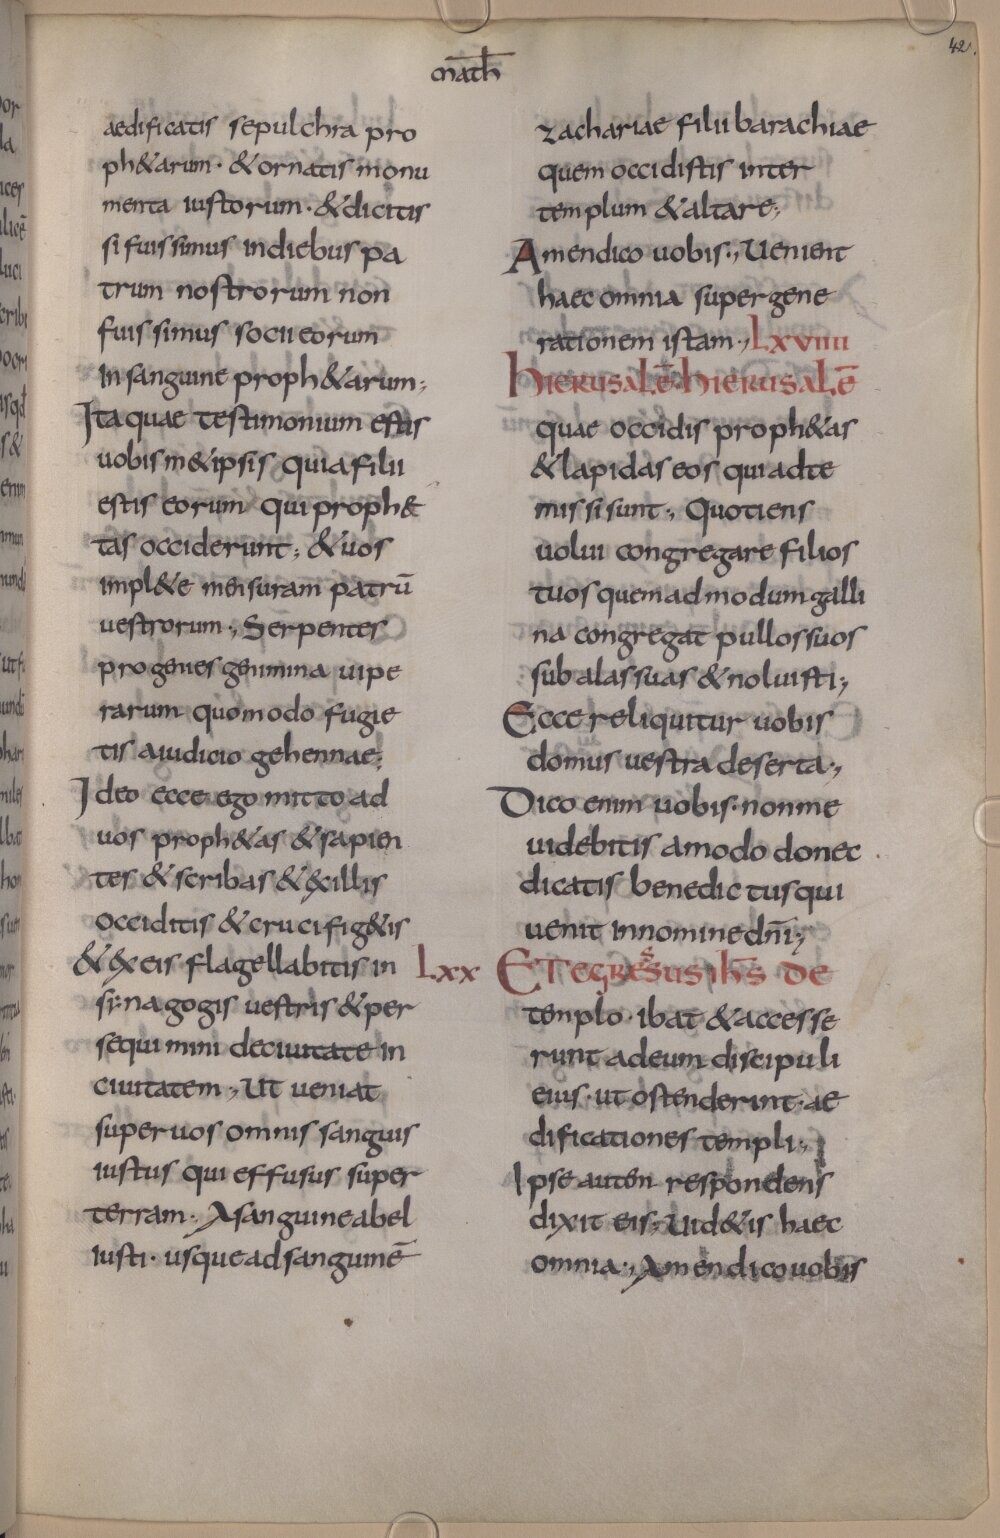 42.
math
aedificatis sepulchra pro
ph&arum · & ornatis monu
menta iustorum · & dicitis
si fuissimus in diebus pa
trum nostrorum non
fuissimus socii eorum
in sanguine proph&arum ;
Ita quae testimonium estis
uobism&ipsis quia filii
estis eorum qui proph&
tas occiderunt ; & uos
impl&e mensuram patrū
uestrorum ·, Serpentes
progenies genimina uipe
rarum quomodo fugie
tis a iudicio gehennae ;
Ideo ecce ego mitto ad
uos proph&as & sapien
tes & scribas & &xillis
occiditis & crucifig&is
& &x eis flagellabitis in
synagogis uestris & per
sequimini deciuitate in
ciuitatem ·, Ut ueniat
super uos omnis sanguis
iustus qui effusus super
terram ·, A sanguine abel
iusti · usque ad sanguinē
zachariae filii barachiae
quem occidistis inter
templum & altare ;
Amen dico uobis ·, Uenient
haec omnia super gene
rationem istam ·, LXVIIII
HIERUSALĒ · HIERUSALĒ
quae occidis proph&as
& lapidas eos qui ad te
missi sunt ·, Quotiens
uolui congregare filios
tuos quem ad modum galli
na congregat pullos suos
sub alas suas & noluisti ;
Ecce reliquitur uobis
domus uestra deserta ·,
Dico enim uobis · non me
uidebitis amodo donec
dicatis benedictus qui
uenit in nomine dn̄i ;
LXX ET EGRESSUS IHS̄ DE
templo · ibat & accesse
runt ad eum discipuli
eius · ut ostenderint · ae
dificationes templi ·,
Ipse autēn respondens
dixit eis ; Uid&is haec
omnia ·, Amen dico uobis